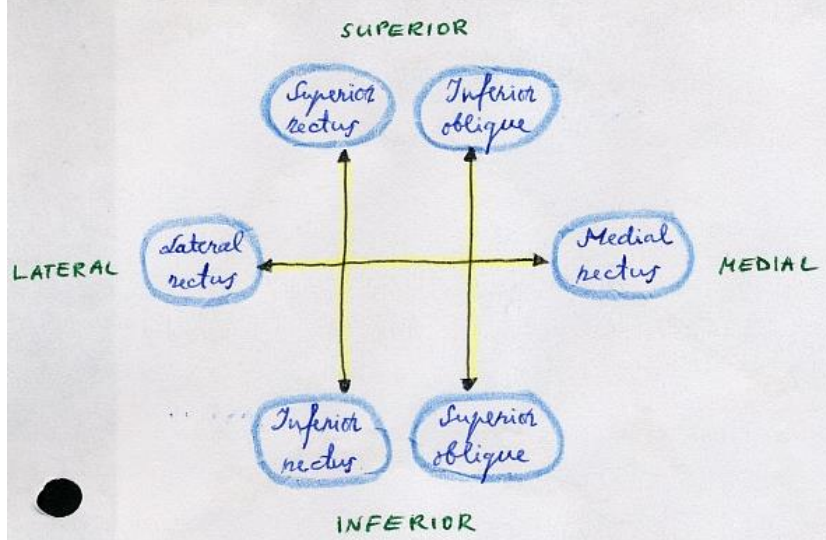 SUPERIOR
Superior
rectus
Inferior
oblique
Lateral
rectus
Medial
rectus
LATERAL
MEDIAL
Inferior
rectus
Superior
oblique
INFERIOR